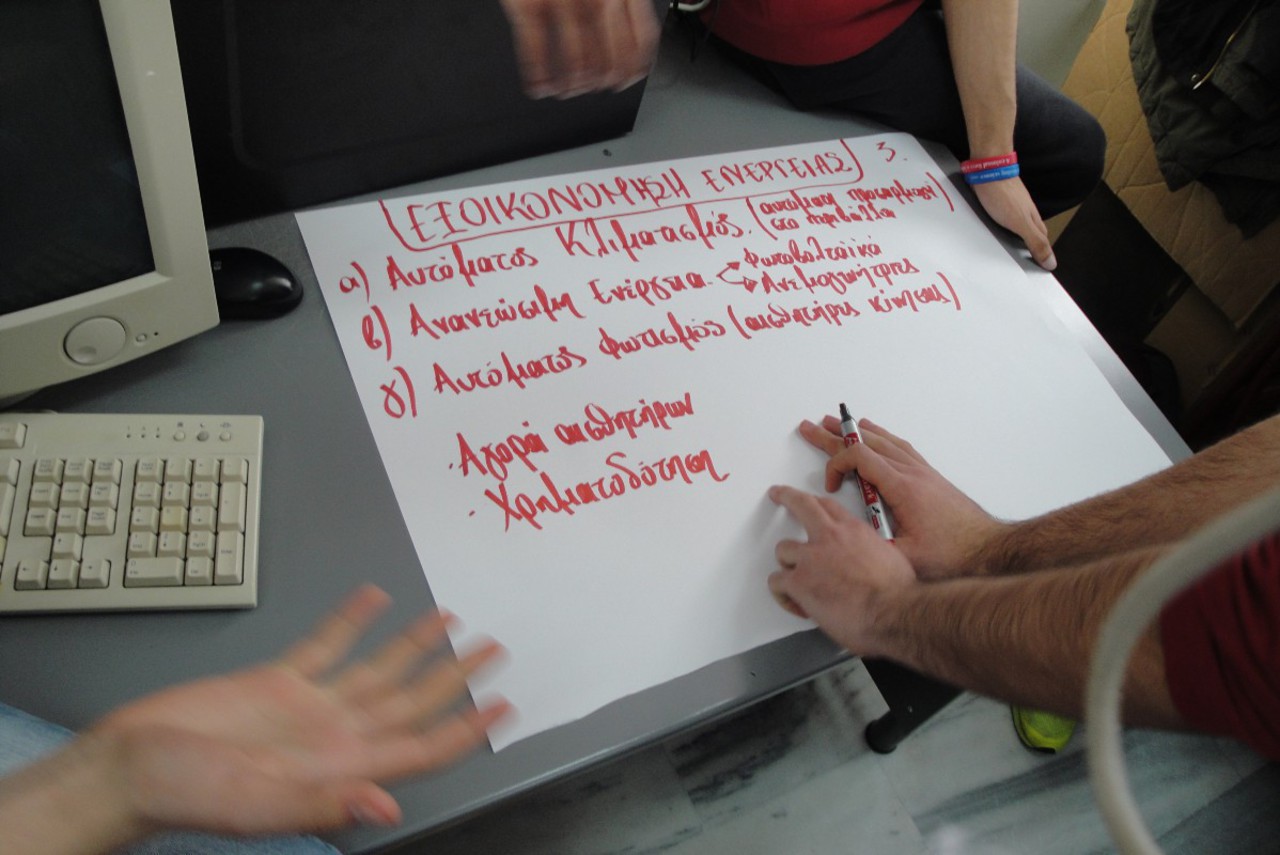 ΕΞΟΙΚΟΝΟΜΗΣΗ ΕΝΕΡΓΕΙΑΣ 3.
α) Αυτόματος Κλιματισμός. (αυτόματη προσαρμογή
στο περιβάλλον)
β) Ανανεώσιμη Ενέργεια Φωτοβολταϊκά
Ανεμογεννήτρης
γ) Αυτόματος Φωτισμός (αισθητήρες κίνησης)
· Αγορά αισθητήρων
· Χρηματοδότηση